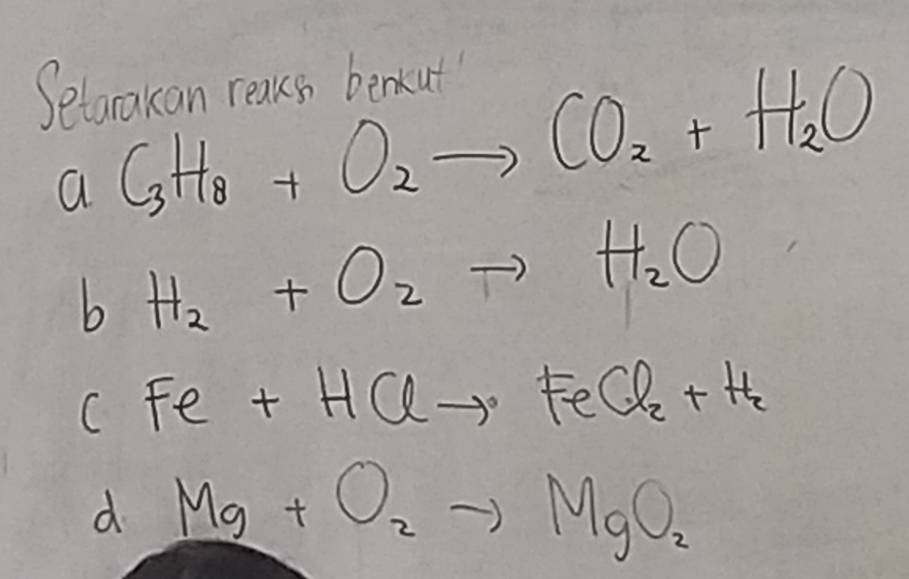 Setarakan reaksi berikut!
a C₃H₈ + O₂ → CO₂ + H₂O
b H₂ + O₂ → H₂O
c Fe + HCl → FeCl₂ + H₂
d. Mg + O₂ → MgO₂